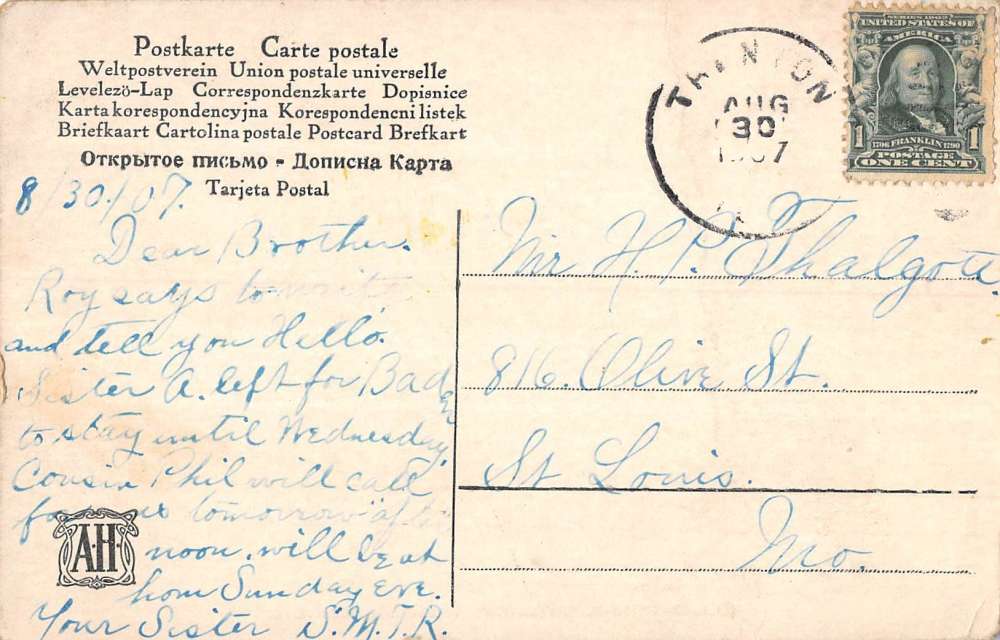 Postkarte Carte postale
Weltpostverein Union postale universelle
Levelezö-Lap Correspondenzkarte Dopisnice
Karta korespondencyjna Korespondencni listek
Briefkaart Cartolina postale Postcard Brefkart
Открытое письмо - Дописна Карта
Tarjeta Postal
TRENTON
AUG
30
1907
SERIES 1902
UNITED STATES OF
AMERICA
1706 FRANKLIN 1790
1 POSTAGE 1
ONE CENT
8/30/07.
Dear Brother.
Roy says to write
and tell you Hello.
Sister A. left for Baden
to stay until Wednesday
Cousin Phil will call
for us tomorrow after
noon. will be at
hom Sunday eve.
Your Sister S.M.T.R.
A·H
Mr H. P. Thalgott.
816. Olive St.
St Louis.
Mo.